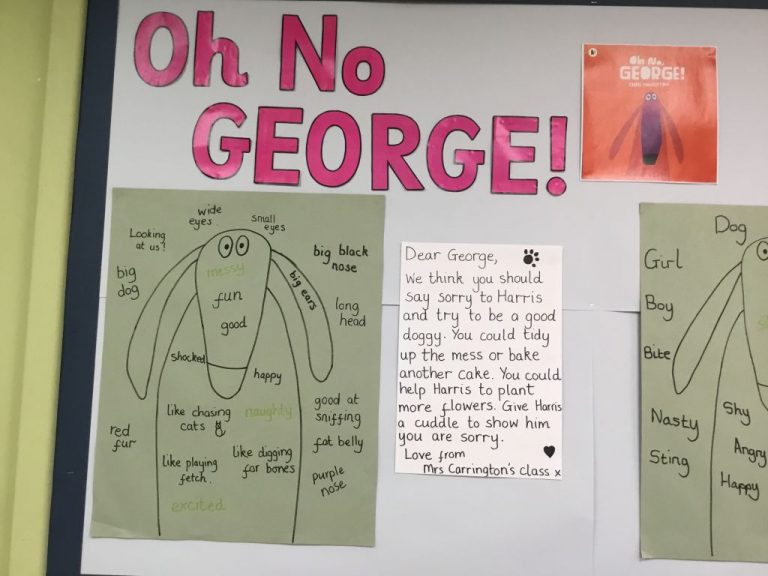 Oh No
GEORGE!
Oh No,
GEORGE!
wide
eyes.
small
eyes
Looking
at us!
big black
nose
big
dog
messy
big ears
fun
long
head
good
shocked
happy
good at
sniffing
like chasing
cats
naughty
red
fur
fat belly
like playing
fetch.
like digging
for bones
purple
nose
excited
Dear George,
We think you should
say sorry to Harris
and try to be a good
doggy. You could tidy
up the mess or bake
another cake. You could
help Harris to plant
more flowers. Give Harris
a cuddle to show him
you are sorry.
Love from
Mrs Carrington's class x
Dog
Girl
Boy
Bite
Nasty
Shy
Sting
Angry
Happy